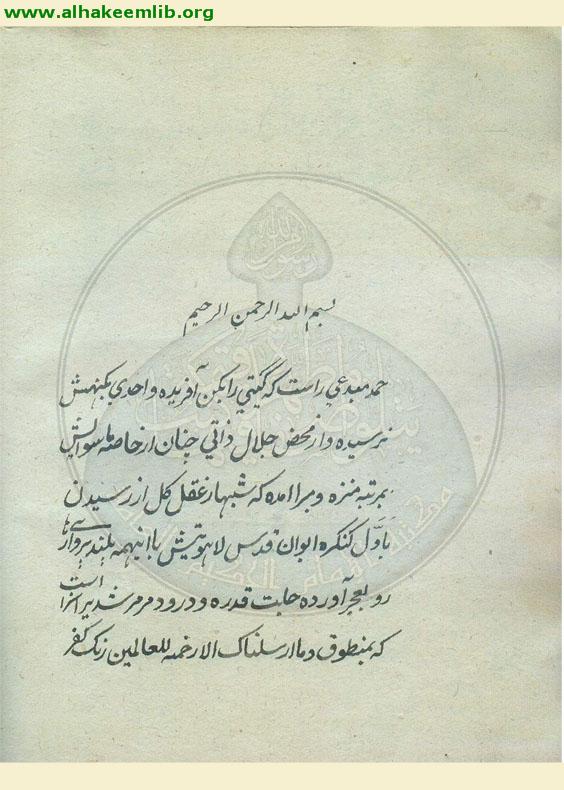 www.alhakeemlib.org
بسم الله الرحمن الرحيم
حمد مبدعي راست که گيتي را بکن آفريده و احدي بکنهش
نرسيده و از محض جلال ذاتي چنان از خاصه ماسوايش
بمرتبه منزه و مبرا امده که شهباز عقل کل از رسيدن
باول کنکره ايوان قدس لاهوتيتش با اينهمه بلند پروازيها
رو بعجز آورده جلت قدره و درود مر مرشديرا سزا است
که بمنطوق وما ارسلناک الا رحمة للعالمين زنک کفر